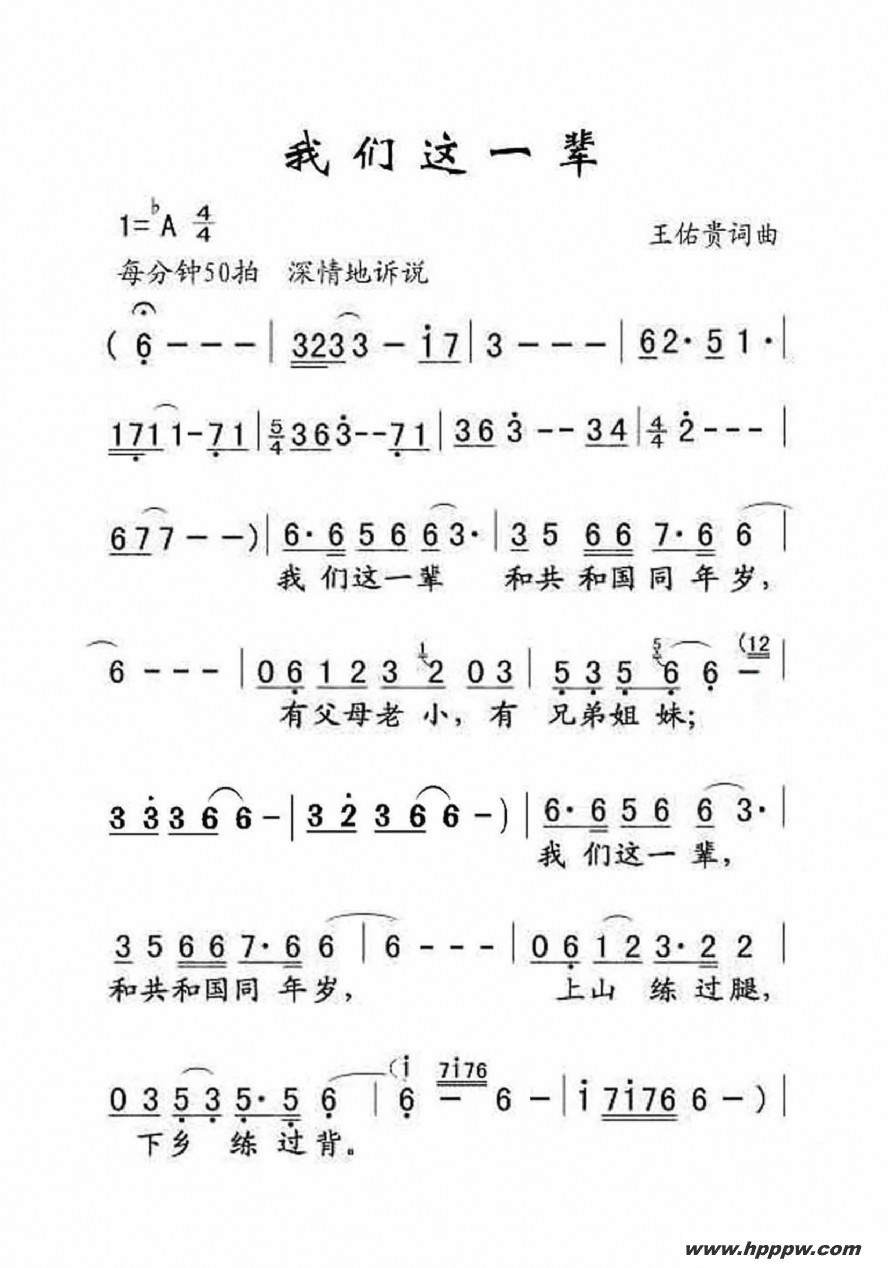 我们这一辈
1=♭A 4/4
王佑贵词曲
每分钟50拍 深情地诉说
( 6 - - - | 3233 - i7 | 3 - - - | 62· 51· |
1711-71 | 5/4 363--71 | 363--34 | 4/4 2 - - - |
677 - - ) | 6· 6 56 63· | 35 66 7· 6 6 |
我们这一辈 和共和国同年岁，
6 - - - | 06 12 3 1 2 03 | 53 5 5 6 6 - (12
有父母老小，有 兄弟姐妹；
33366 - | 32366 - ) | 6· 6 56 6 3· |
我们这一辈，
35 66 7· 6 6 | 6 - - - | 06 12 3· 2 2 |
和共和国同年岁， 上山练过腿，
03 53 5· 5 6 | 6 (i - 7i76 6 - | i 7i76 6 - ) |
下乡练过背。
www.hpppw.com